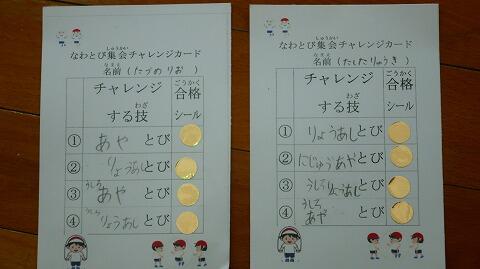 なわとび集会チャレンジカード
しゅうかい
名前(たづめりお)
なまえ
チャレンジする技
わざ
合格シール
ごうかく
① あや とび
② りょうあしとび
③ うしろあや とび
④ うしろりょうあし とび
なわとび集会チャレンジカード
しゅうかい
名前(たしたりゅうき)
なまえ
チャレンジする技
わざ
合格シール
ごうかく
① りょうあしとび
② にじゅうあやとび
③ うしろりょうあしとび
④ うしろあや とび